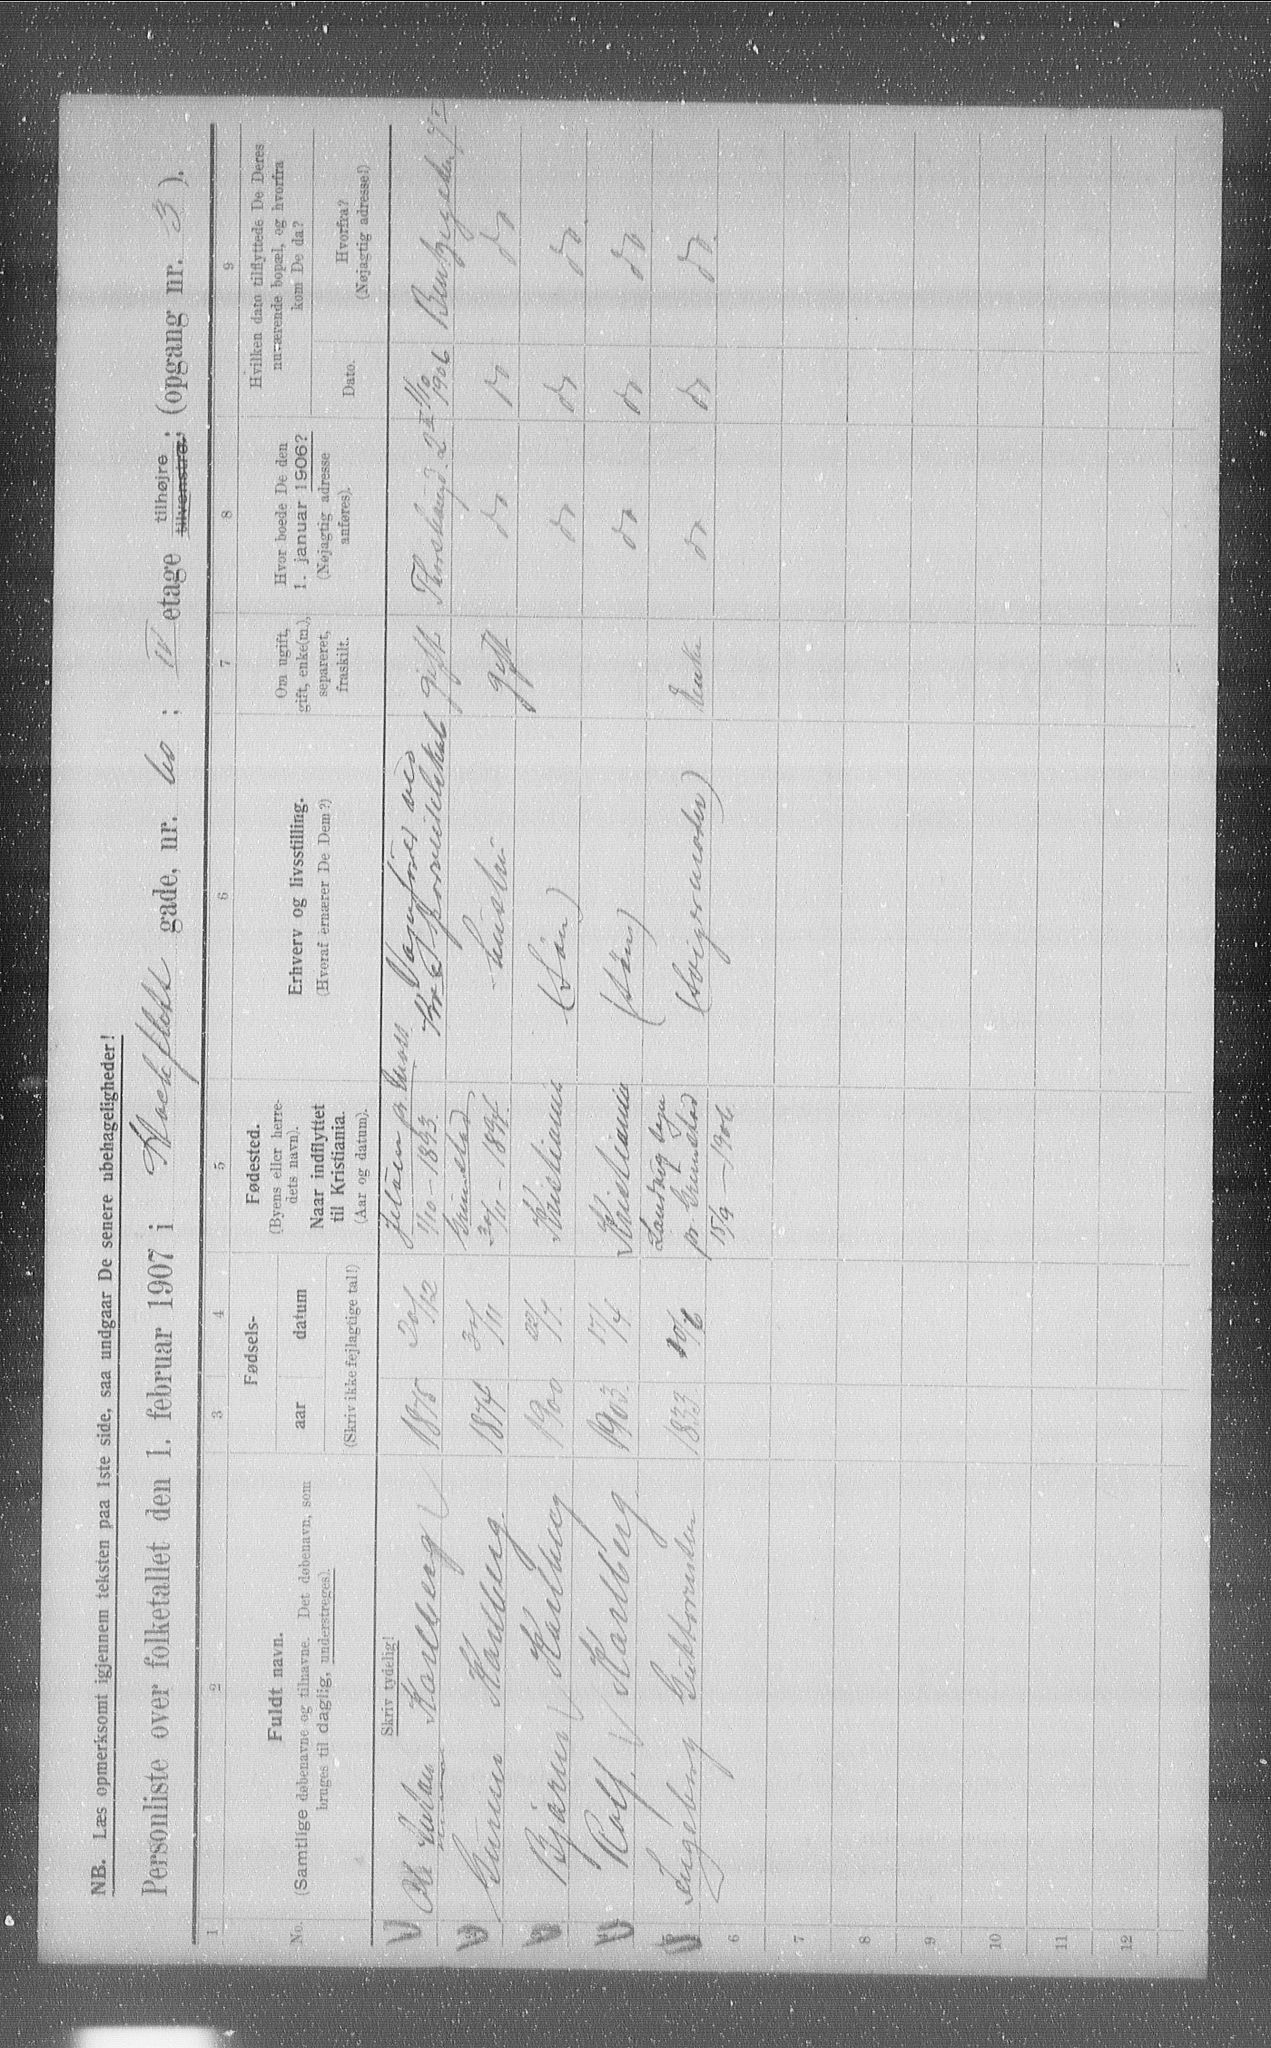 NB. Læs opmerksomt igjennem teksten paa 1ste side, saa undgaar De senere ubehageligheder!
Personliste over folketallet den 1. februar 1907 i gade, nr. 60 ; IV etage tilhøjre, tilvenstre, (opgang nr. 3 ).
1 2 3 4 5 6 7 8 9
No.
Fuldt navn.
(Samtlige døbenavne og tilnavne. Det døbenavn, som
bruges til daglig, understreges).
Fødsels-
aar datum
(Skriv ikke fejlagtige tal!)
Fødested.
(Byens eller herre-
dets navn).
Naar indflyttet
til Kristiania.
(Aar og datum).
Erhverv og livsstilling.
(Hveraf ernærer De Dem?)
Om ugift,
gift, enke(m.),
separeret,
fraskilt.
Hvor boede De den
1. januar 1906?
(Nøjagtig adresse
anføres).
Hvilken dato tilflyttede De Deres
nuværende bopæl, og hvorfra
kom De da?
Dato.
Hvorfra?
(Nøjagtig adresse!)
Skriv tydelig!
Ole Johan Karlberg 1875 20/12 Jeløen pr. Moss
1/10 - 1893 Vognfører ved
gift 1/10
1906
Karlberg 1874 30/11 Grimstad
30/11 - 1894 Hustru gift do do do
Bjarne Karlberg 1900 22/7 Kristiania (Søn) do do do.
Rolf Karlberg 1903 17/4 Kristiania (Søn) do do do
Ingeborg 1833 10/6 Landvig sogn
pr Grimstad
15/9 - 1906 (Svigermoder) Enke do do do.
6
7
8
9
10
11
12